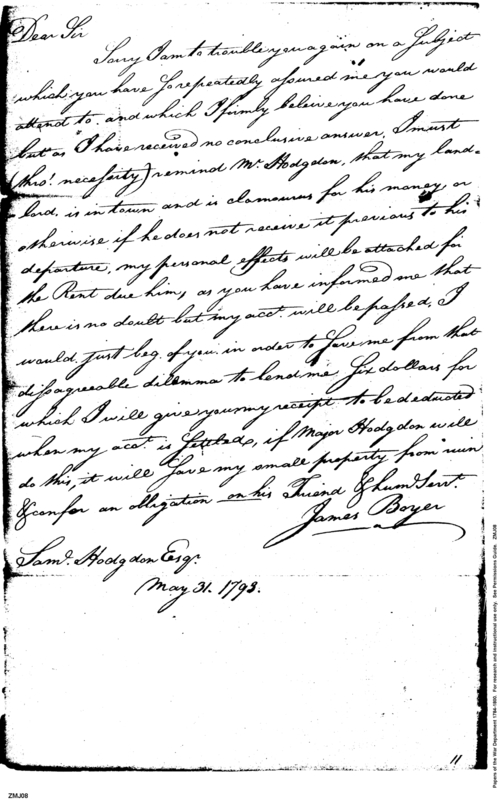 Dear Sir
Sorry I am to trouble you again on a Subject
which you have so repeatedly assured me you would
attend to. and which I firmly beleive you have done
but as I have received no conclusive answer, I must
(thro' necessity) remind Mr. Hodgdon, that my land=
lord, is in town and is clamourous for his money, or
otherwise if he does not receive it previous to his
departure, my personal effects will be attached for
the Rent due him, as you have informed me that
there is no doubt but my acct. will be passed, I
would just beg of you in order to save me from that
dissagreeable dilemma to lend me Six dollars for
which I will give you my receipt to be deducted
when my acct. is settled, if Major Hodgdon will
do this, it will save my small property from ruin
& confer an obligation on his Friend & hum. Servt.
James Boyer
Saml. Hodgdon Esqr.
May 31. 1793.
11
ZMJ08
Papers of the War Department 1784-1800. For research and instructional use only. See Permissions Guide. ZMJ08